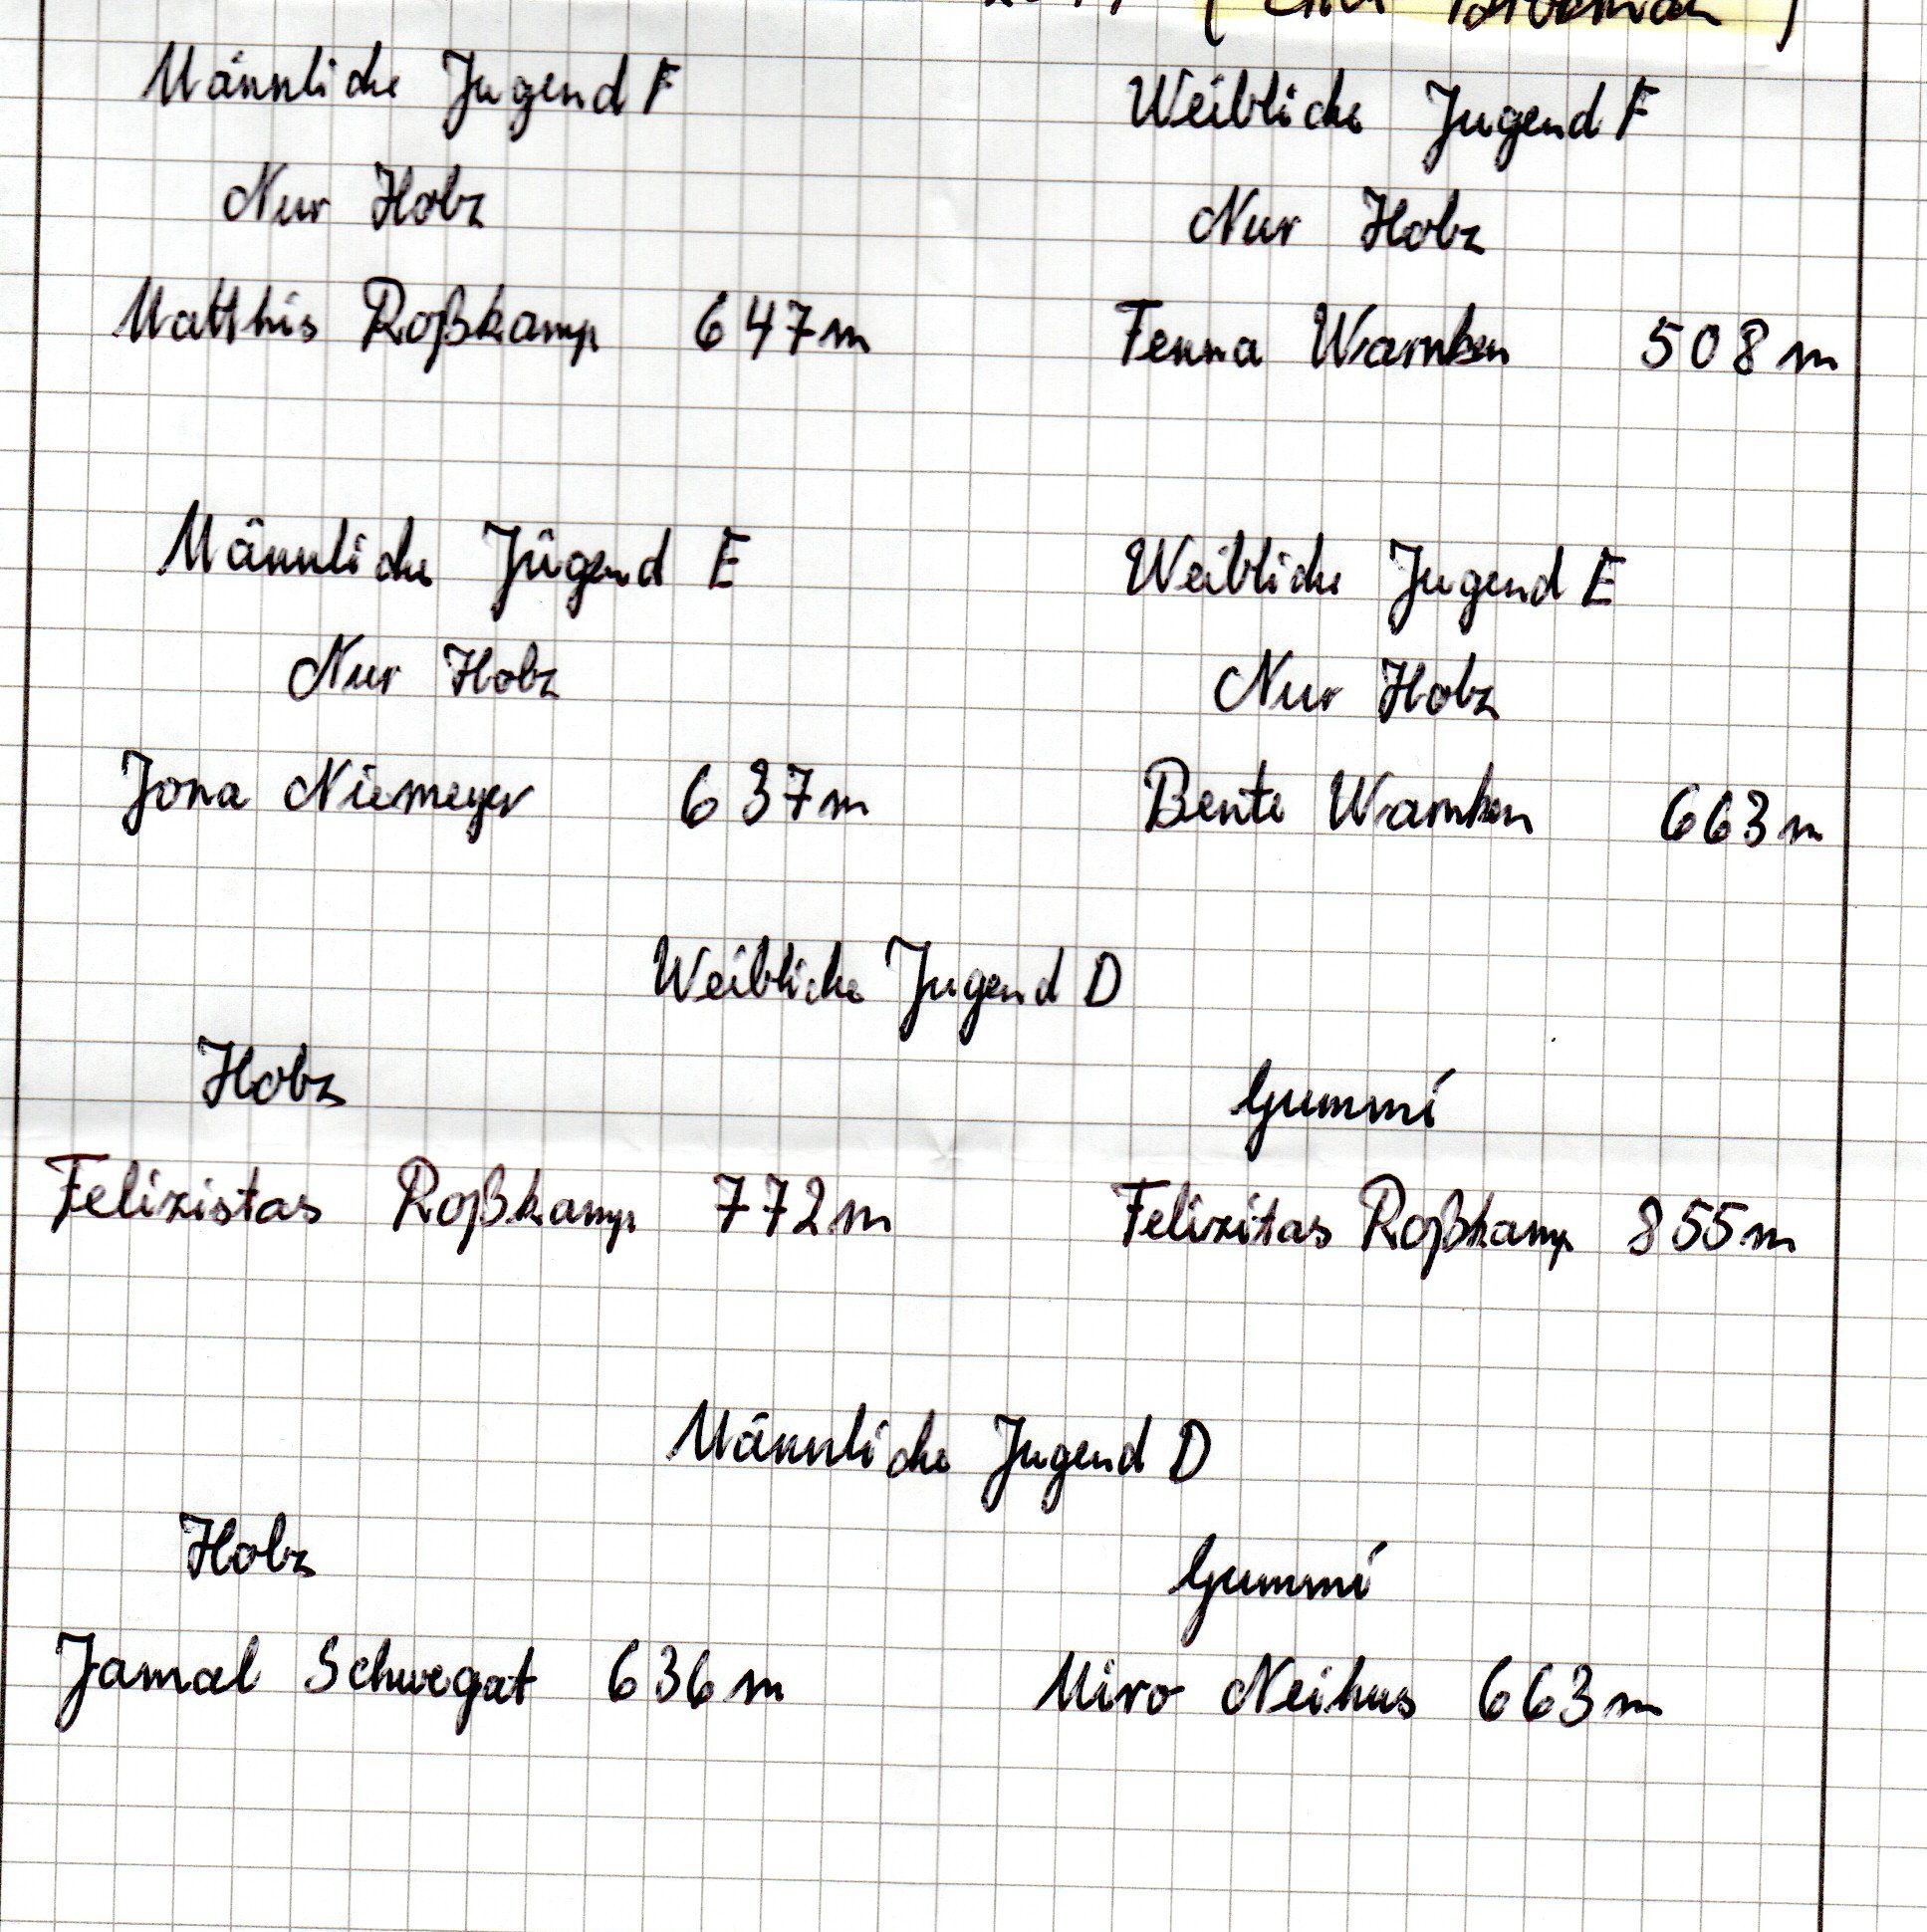 Männliche Jugend F
Weibliche Jugend F
Nur Holz
Nur Holz
Matthis Roßkamp 647m
Fenna Warnken 508m
Männliche Jugend E
Weibliche Jugend E
Nur Holz
Nur Holz
Jona Niemeyer 637m
Bente Warnken 663m
Weibliche Jugend D
Holz
Gummi
Felizistas Roßkamp 772m
Felizitas Roßkamp 855m
Männliche Jugend D
Holz
Gummi
Jamal Schwegat 636m
Miro Neihus 663m